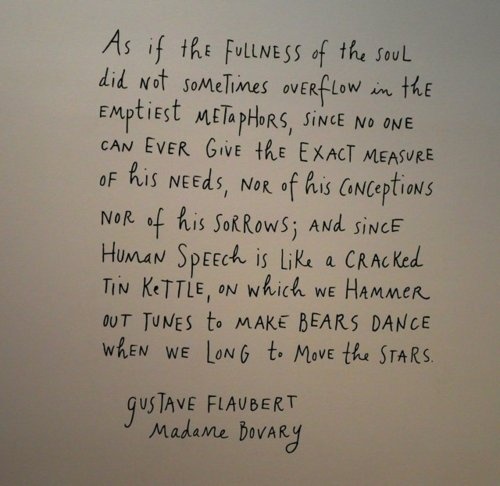 As if the FULLNESS of the soul
did Not someTimes overfLow in thE
EMptiest METapHORS, SiNCE No ONE
CAN EVER GiVE thE EXACT MEASURE
oF his NEEds, NOR of his CoNCeptioNS
NOR of his SoRRoWs; ANd siNCE
HUMAN SpEEch is LiKe a CRACKed
TiN KeTTLE, oN which WE HAMMER
OUT TUNES to MAKE BEARS DANCE
whEN WE LoNG to MoVE the STARS.
gUSTAVE FLAUBERT
MadaMe BoVARy